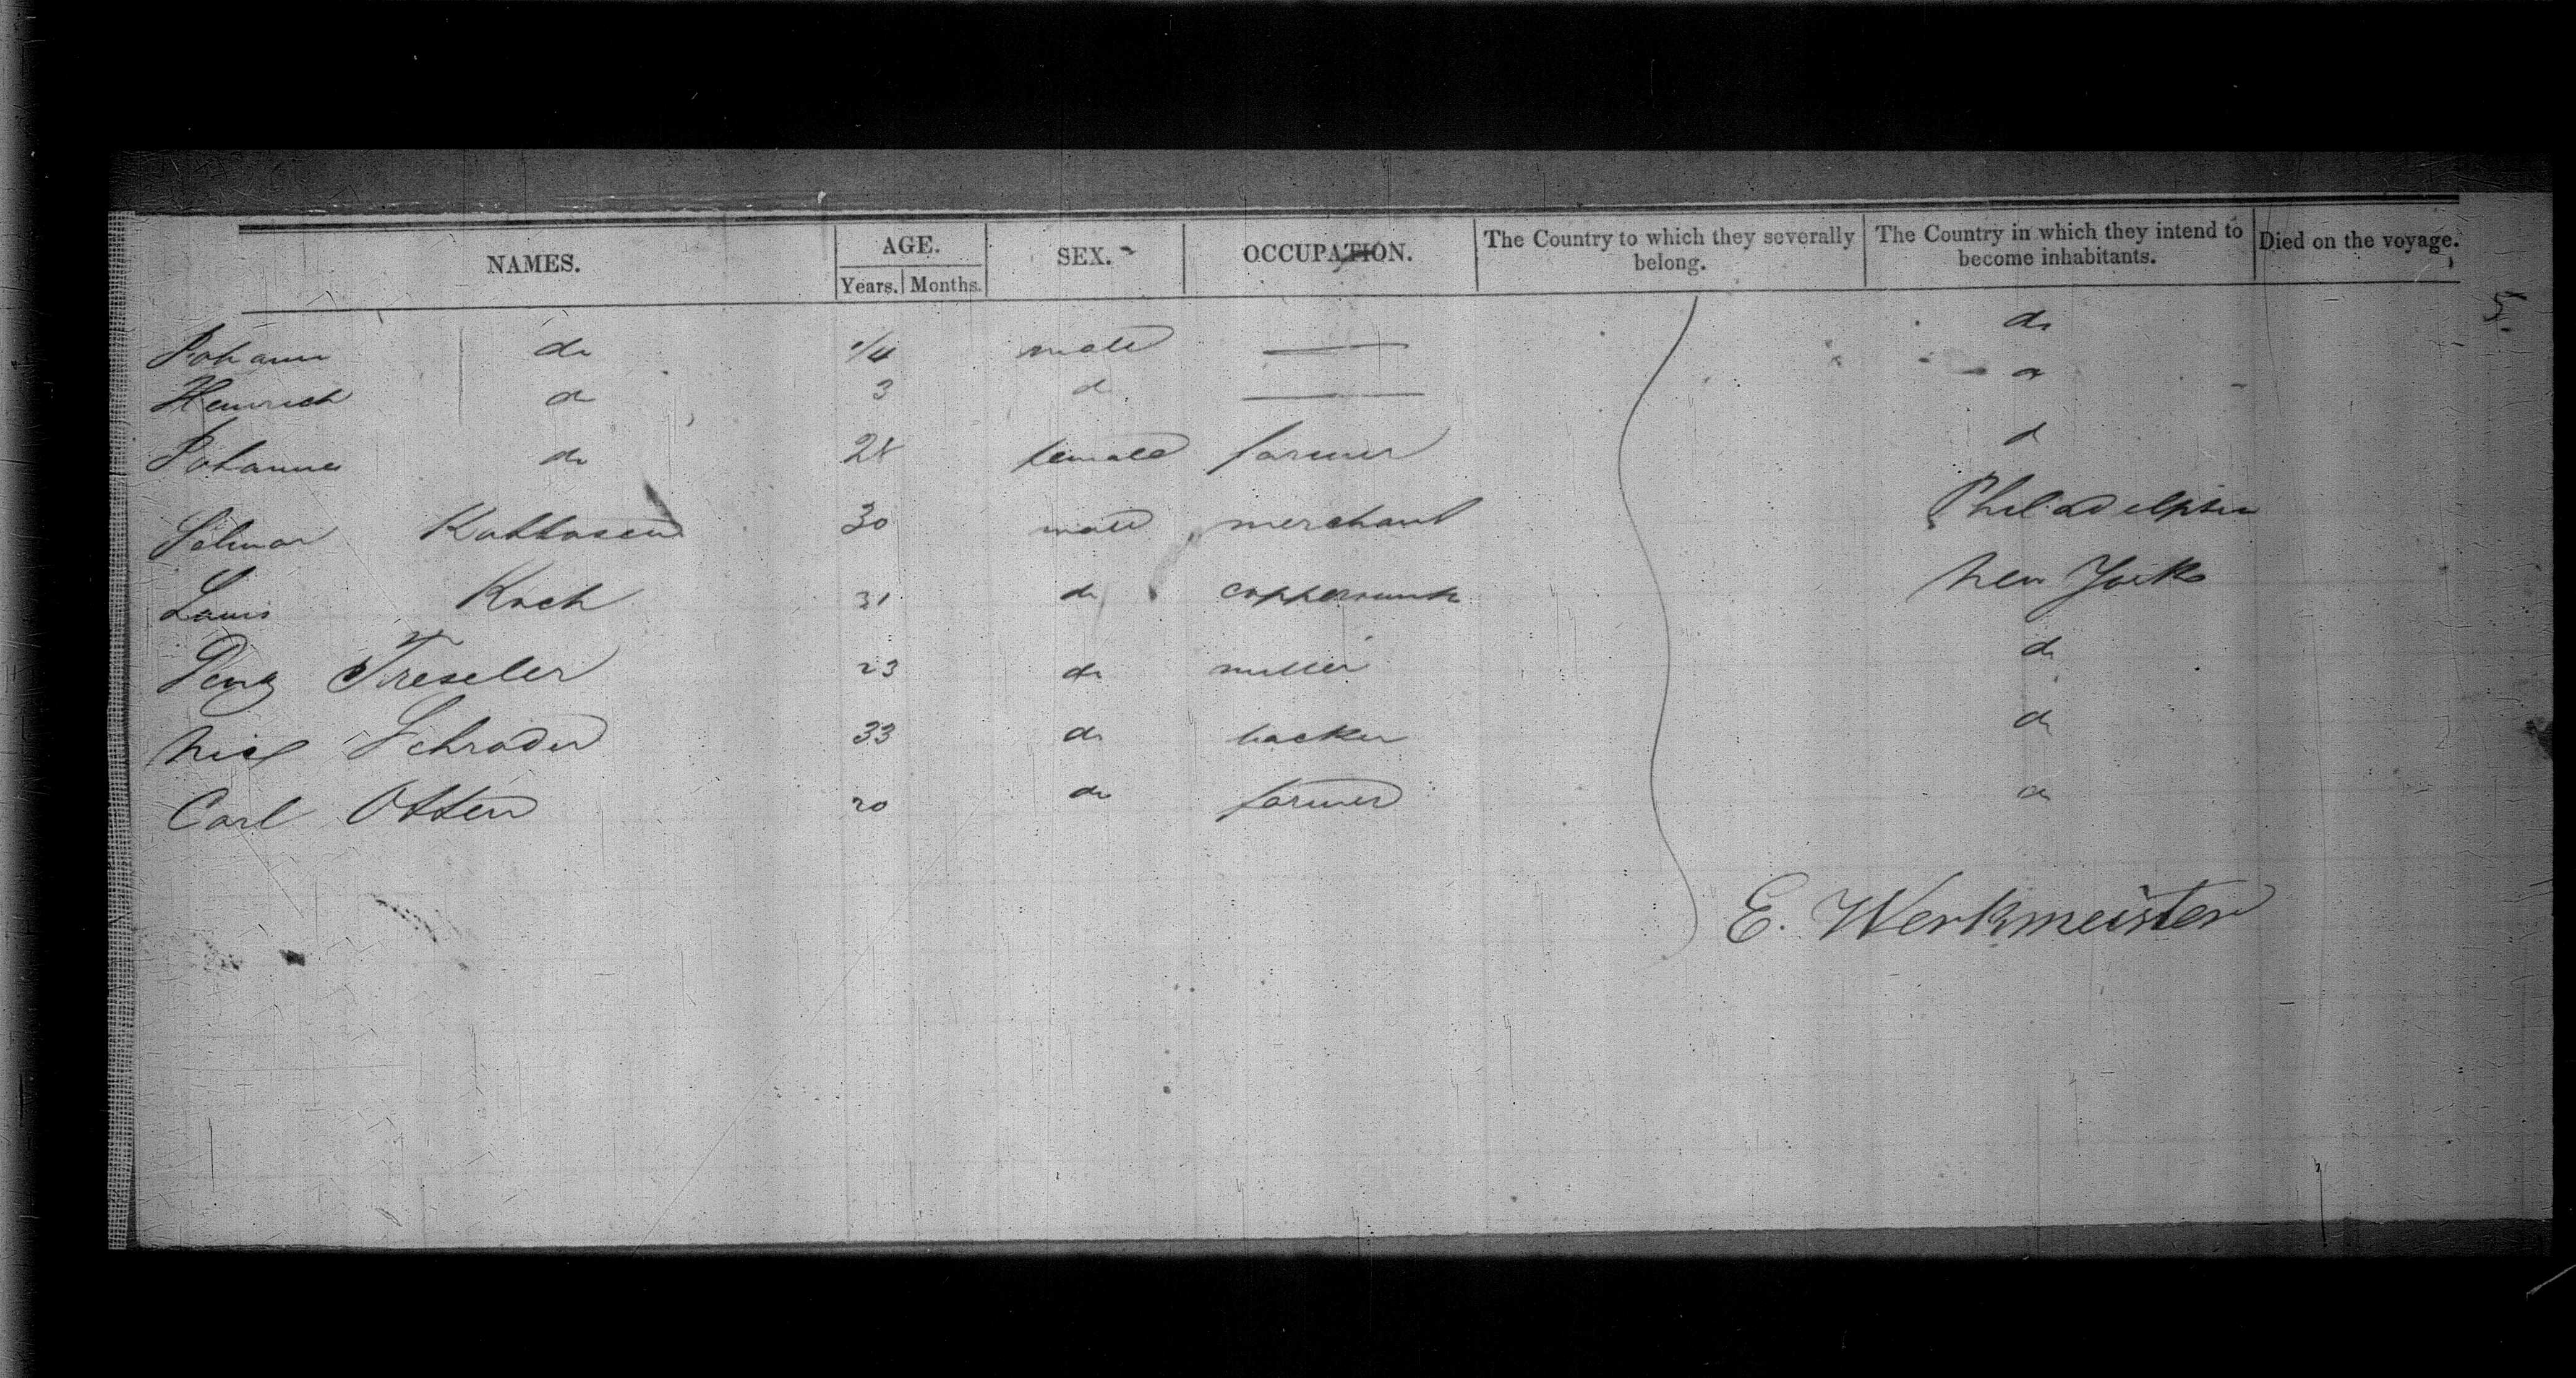 NAMES. AGE. SEX. OCCUPATION. The Country to which they severally belong. The Country in which they intend to become inhabitants. Died on the voyage.
Years. Months.
5
Johann do 1/4 male — do
Heinrich do 3 do — do
Johanne do 28 female farmer do
30 male merchant Philadelphia
Louis Koch 31 do coppersmith New York
Treseler 23 do miller do
Nicl Schroder 33 do backer do
Carl Otten 20 do farmer do
E. Werkmeister